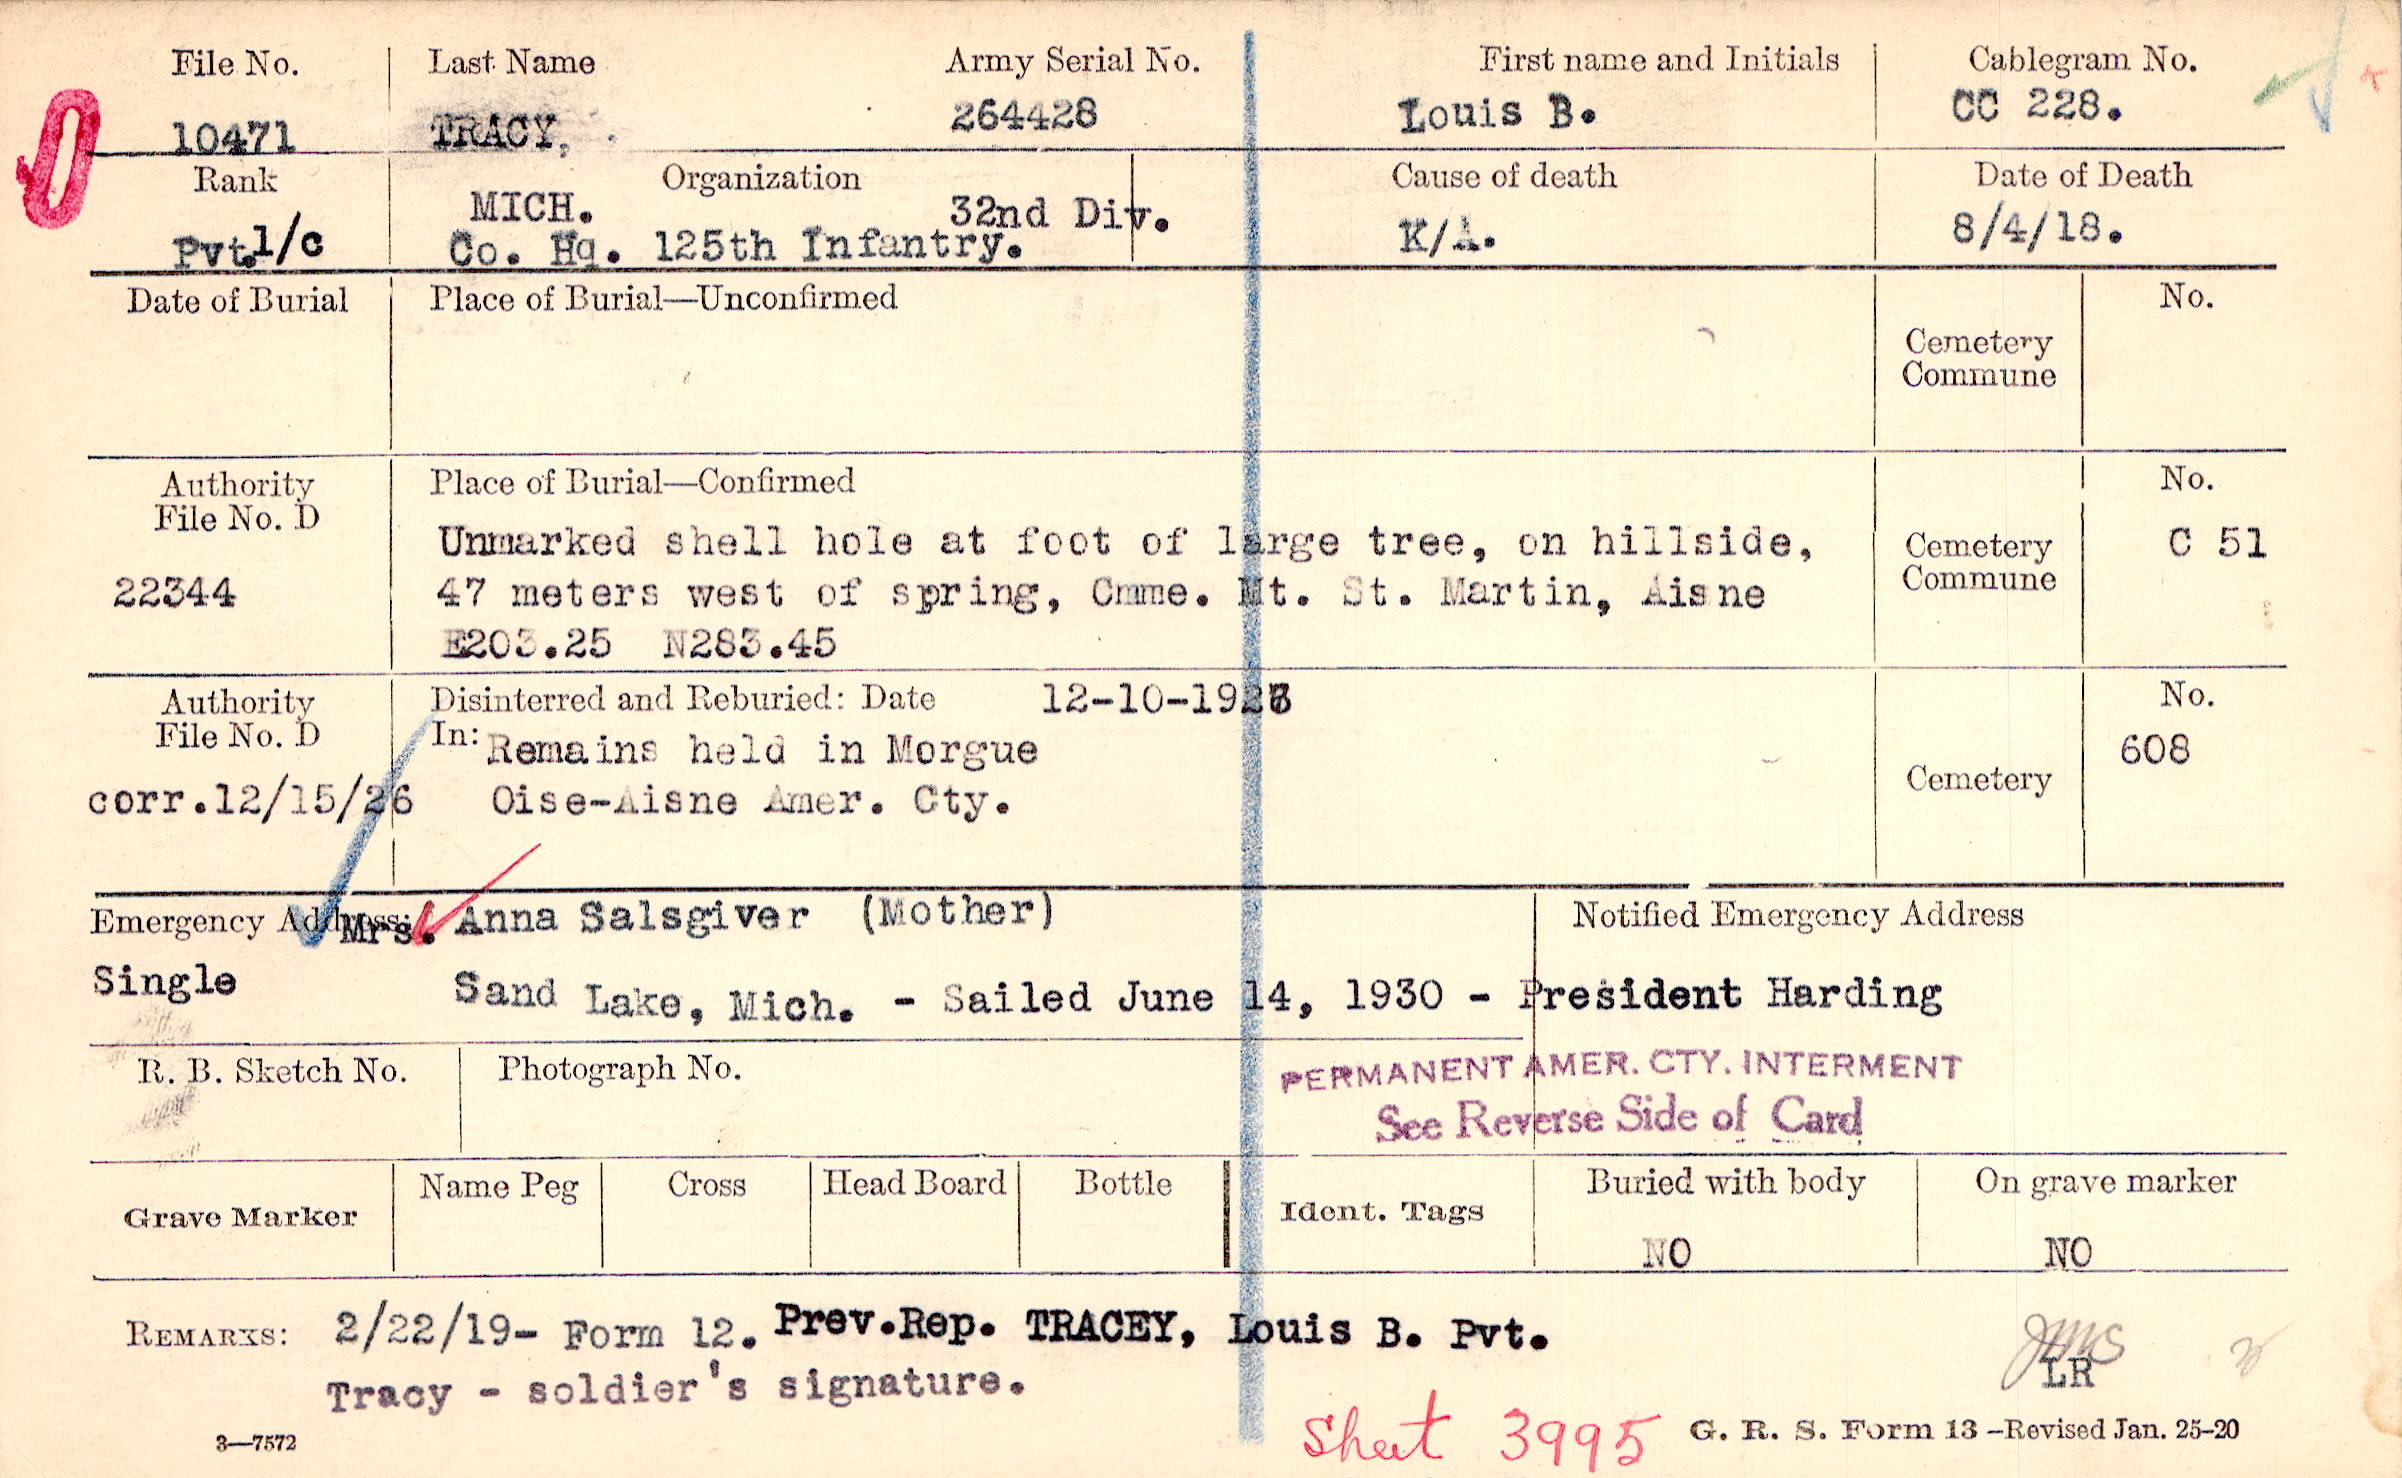 File No. Last Name Army Serial No. First name and Initials Cablegram No.
10471 TRACY, 264428 Louis B. CC 228.
Rank Organization Cause of death Date of Death
MICH. 32nd Div.
Pvt.1/c Co. Hq. 125th Infantry. K/A. 8/4/18.
Date of Burial Place of Burial—Unconfirmed No.
Cemetery
Commune
Authority Place of Burial—Confirmed No.
File No. D
Unmarked shell hole at foot of large tree, on hillside, Cemetery C 51
22344 47 meters west of spring, Cmme. Mt. St. Martin, Aisne Commune
E203.25 N283.45
Authority Disinterred and Reburied: Date 12-10-192 No.
File No. D In: Remains held in Morgue 608
corr.12/15/26 Oise-Aisne Amer. Cty. Cemetery
Emergency Address: Mrs. Anna Salsgiver (Mother) Notified Emergency Address
Single Sand Lake, Mich. - Sailed June 14, 1930 - President Harding
R. B. Sketch No. Photograph No. PERMANENT AMER. CTY. INTERMENT
See Reverse Side of Card
Grave Marker Name Peg Cross Head Board Bottle Ident. Tags Buried with body On grave marker
NO NO
REMARKS: 2/22/19- Form 12. Prev.Rep. TRACEY, Louis B. Pvt.
Tracy - soldier's signature. LR
Sheet 3995
3—7572 G. R. S. Form 13 -Revised Jan. 25-20